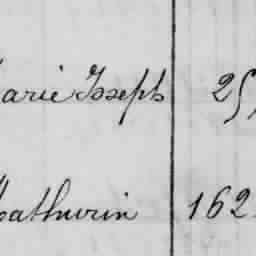 arie Joseph 25
Mathurin 162